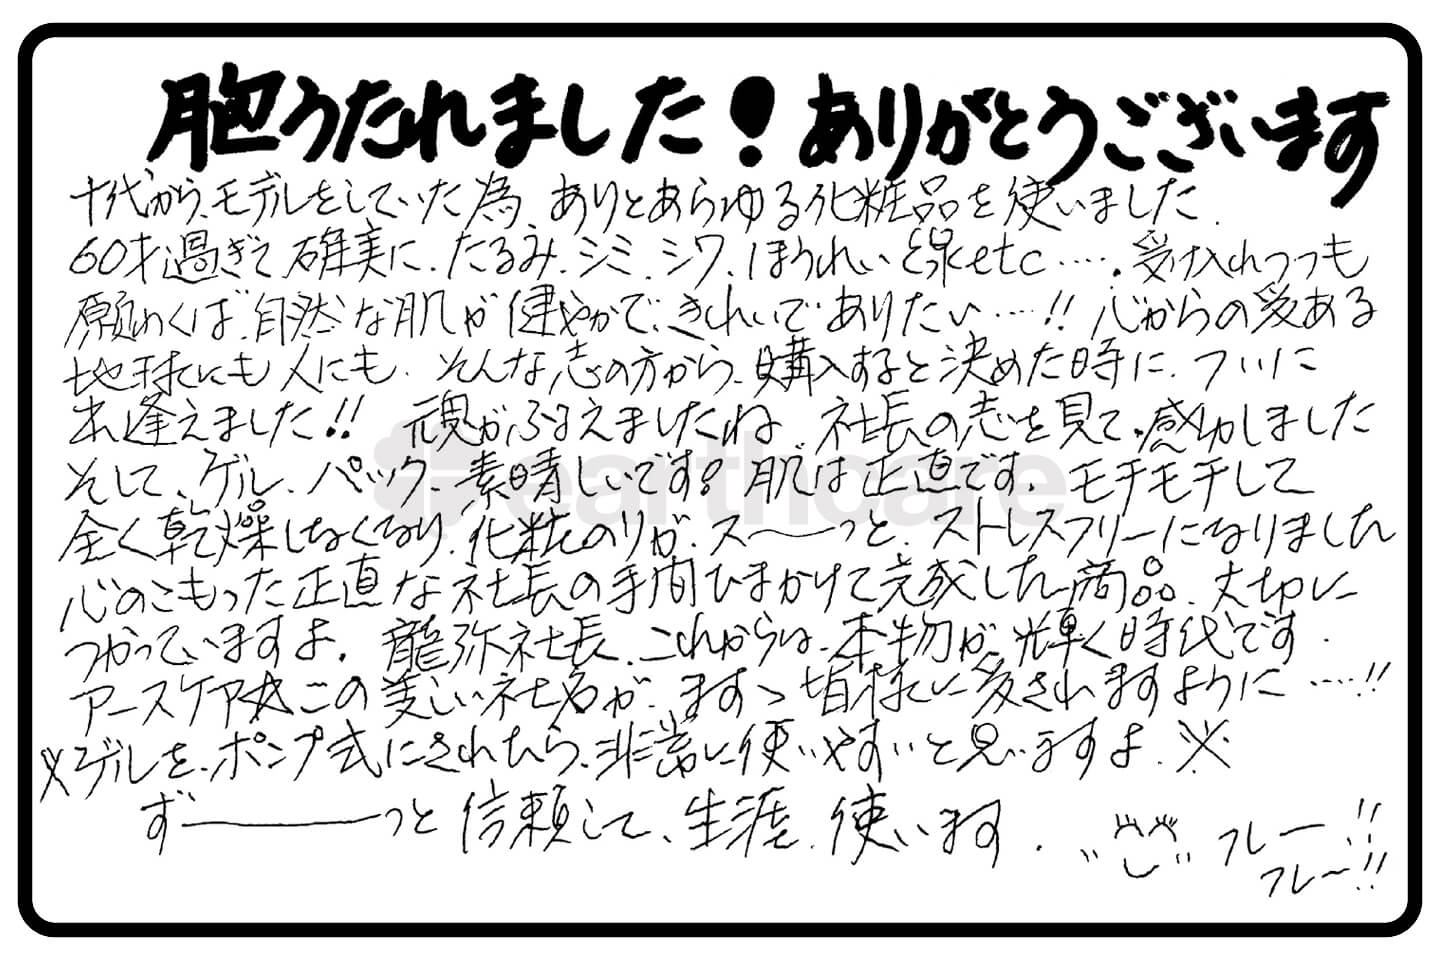 胞うたれました！ありがとうございます
十代から、モデルをしていた為、ありとあらゆる化粧品を使いました．
60才過ぎて 確実に、たるみ、シミ、シワ、ほうれい線etc…．受け入れつつも
願わくば、自然な肌が健やかで、きれいでありたい…!! 心からの愛ある
地球にも人にも、そんな志の方から、購入すると決めた時に、ついに
出逢えました!! 魂がふるえましたね 社長の志を見て、感動しました
そして、ゲル、パック、素晴しいです! 肌は正直です。モチモチして
全く乾燥しなくなり、化粧のりが、スーーっと、ストレスフリーになりました
心のこもった正直な社長の手間ひまかけて完成した商品、大切に
つかっていますよ．龍弥社長、これからは、本物が、輝く時代です．
アースケア この美しい社名が、ますゝ皆様に愛されますように…!!
※ゲルを、ポンプ式にされたら、非常に使いやすいと思いますよ．※
ずーーーっと信頼して、生涯、使います．
フレー!!
フレー!!
earthcare